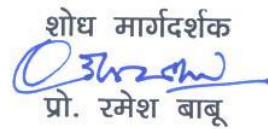 शोध मार्गदर्शक
प्रो. रमेश बाबू